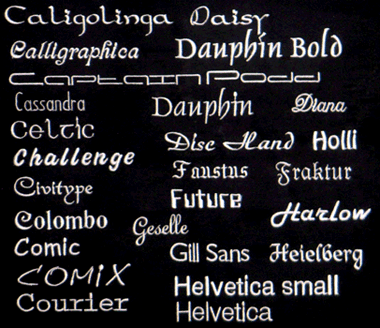 Caligolinga Daisy
Calligraphica Dauphin Bold
Captain Podd
Cassandra Dauphin Diana
Celtic Disc Hand Holli
Challenge Faustus Fraktur
Civitype Future Harlow
Colombo Geselle
Comic Gill Sans Heielberg
COMIX Helvetica small
Courier Helvetica